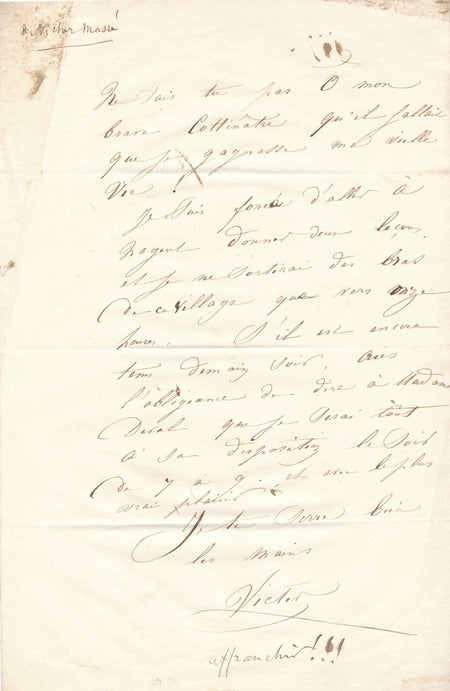 de Victor Massé
!!!
Ne sais tu pas O mon
brave Cottinâtre qu'il fallait
que je gagnasse ma vieille
Vie !
Je suis forcé d'aller à
Nogent donner deux leçons,
et je ne sortirai des bras
de ce village que vers onze
heures. S'il est encore
tems demain soir, aies
l'obligeance de dire à Madame
Deval que je serai tout
à sa disposition le soir
de 7 à 9. et avec le plus
vrai plaisir.
Je te serre bien
les mains
Victor
affranchir !!!